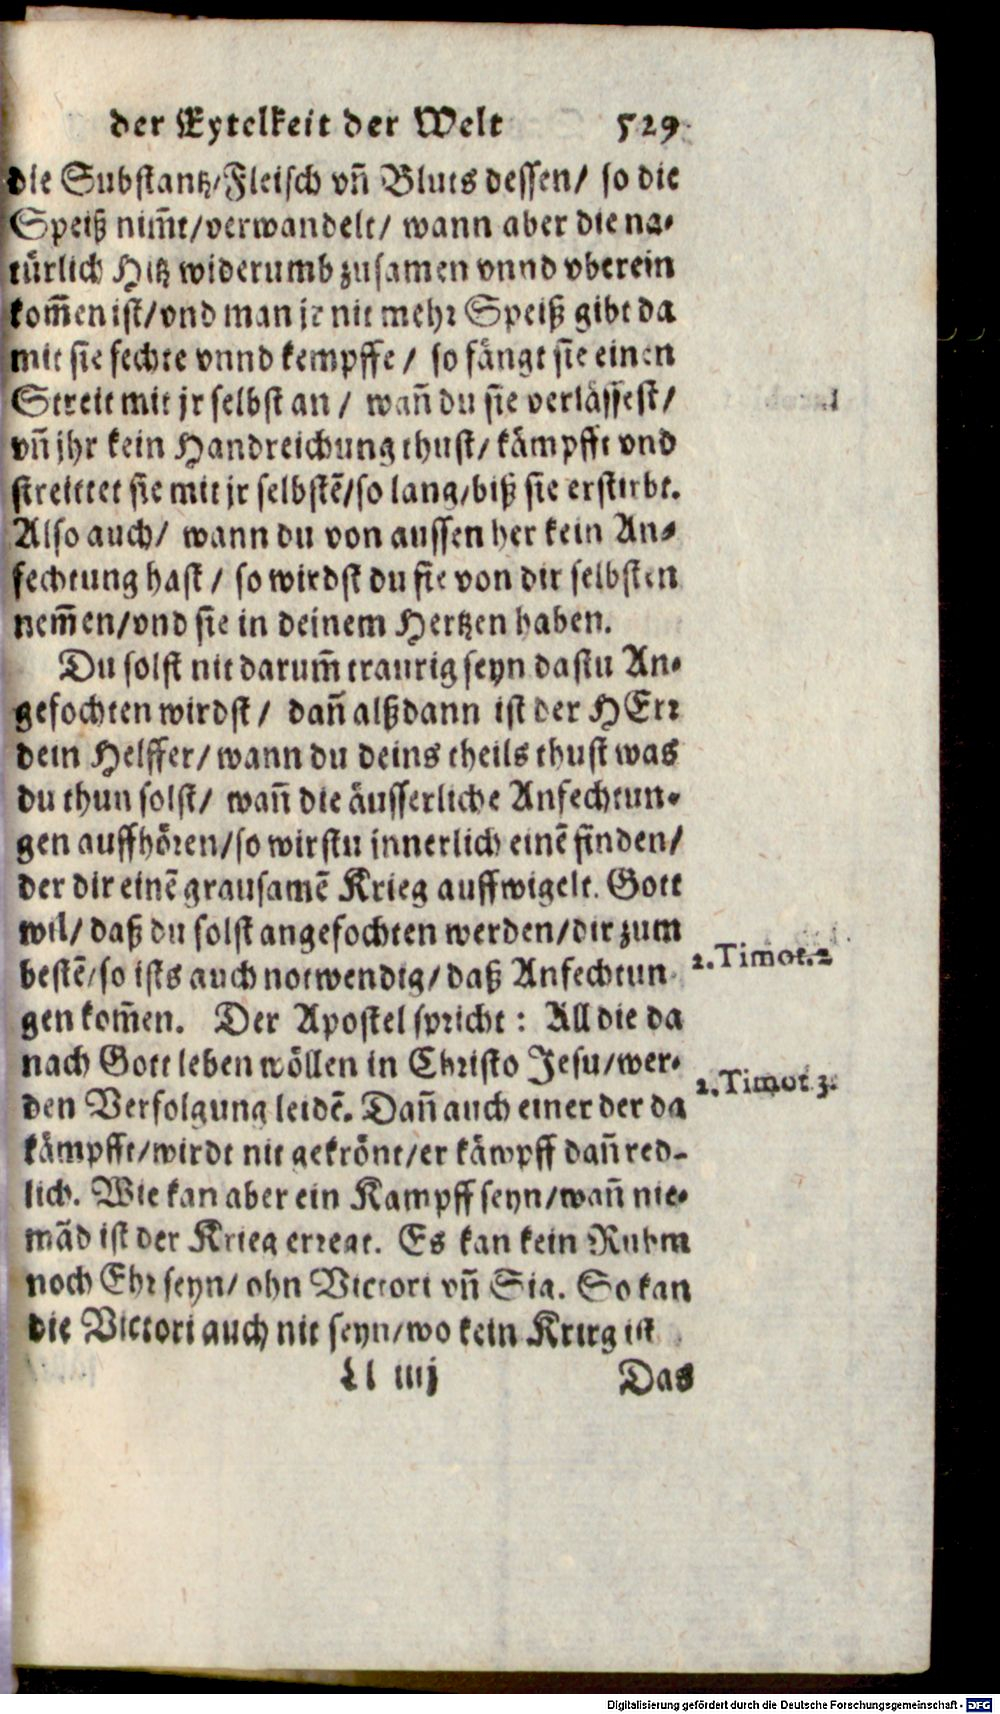 der Eytelkeit der Welt 529
die Substantz/Fleisch vñ Bluts dessen/ so die
Speiß nim̃t/verwandelt/ wann aber die na-
türlich Hitz widerumb zusamen vnnd vberein
kom̃en ist/vnd man jr nit mehr Speiß gibt da
mit sie fechte vnnd kempffe/ so fängt sie einen
Streit mit jr selbst an/ wañ du sie verlässest/
vñ jhr kein Handreichung thust/kämpfft vnd
streittet sie mit jr selbstẽ/so lang/biß sie erstirbt.
Also auch/ wann du von aussen her kein An-
fechtung hast/ so wirdst du sie von dir selbsten
nem̃en/vnd sie in deinem Hertzen haben.
Du solst nit darum̃ traurig seyn dastu An-
gefochten wirdst/ dañ alßdann ist der HErr
dein Helffer/wann du deins theils thust was
du thun solst/ wañ die äusserliche Anfechtun-
gen auffhören/so wirstu innerlich einẽ finden/
der dir einẽ grausamẽ Krieg auffwigelt. Gott
wil/daß du solst angefochten werden/dir zum
bestẽ/so ists auch notwendig/daß Anfechtun-
2.Timot.2
gen kom̃en. Der Apostel spricht: All die da
nach Gott leben wöllen in Christo Jesu/wer-
2.Timot 3.
den Verfolgung leidẽ. Dañ auch einer der da
kämpfft/wirdt nit gekrönt/er kämpff dañ red-
lich. Wie kan aber ein Kampff seyn/wañ nie-
mãd ist der Krieg erregt. Es kan kein Ruhm
noch Ehr seyn/ohn Victori vñ Sig. So kan
die Victori auch nit seyn/wo kein Krieg ist
Ll iiij Das
Digitalisierung gefördert durch die Deutsche Forschungsgemeinschaft - DFG